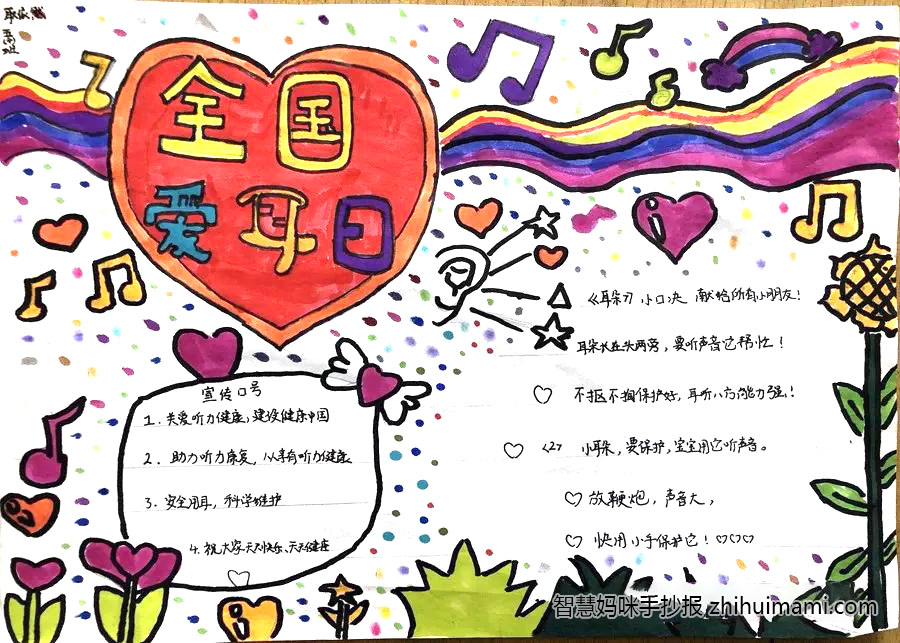 全国
爱耳日
宣传口号
1. 关爱听力健康,建设健康中国
2. 助力听力康复,以享有听力健康
3. 安全用耳,科学维护
4. 祝大家天天快乐、天天健康
《耳朵》小口决 献给所有小朋友!
耳朵长在头两旁,要听声音它帮忙!
不抠不掏保护好,耳听八方能力强!
<2> 小耳朵,要保护,宝宝用它听声音。
放鞭炮,声音大,
快用小手保护它!
智慧妈咪手抄报 zhihuimami.com